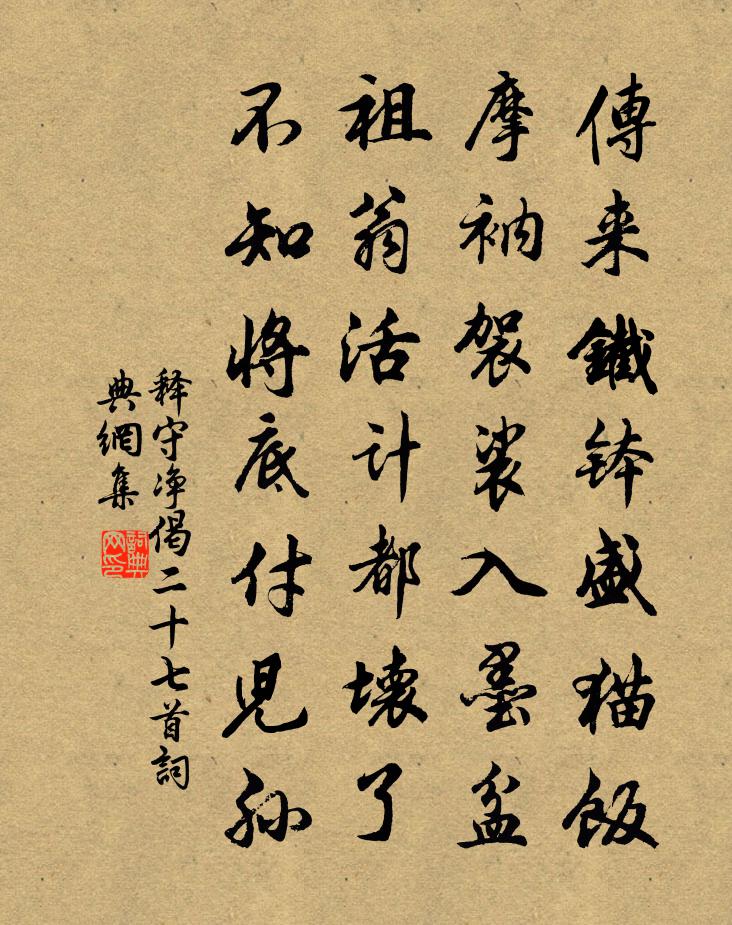 傳来鐵鉢盛猫飯
摩衲袈裟入墨盆
祖翁活计都壊了
不知将底付児孫
释守净偈二十七首詞
典網集
詞典网印